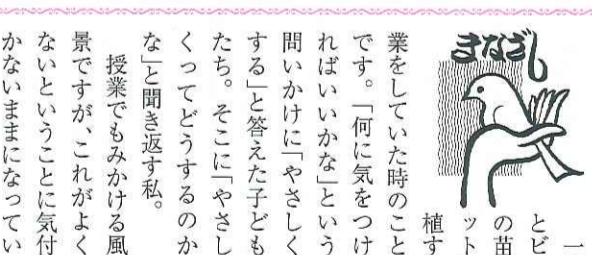 まなざし
一
とビ
の苗
ット
植す
業をしていた時のこと
です。「何に気をつけ
ればいいかな」という
問いかけに「やさしく
する」と答えた子ども
たち。そこに「やさし
くってどうするのか
な」と聞き返す私。
授業でもみかける風
景ですが、これがよく
ないということに気付
かないままになってい